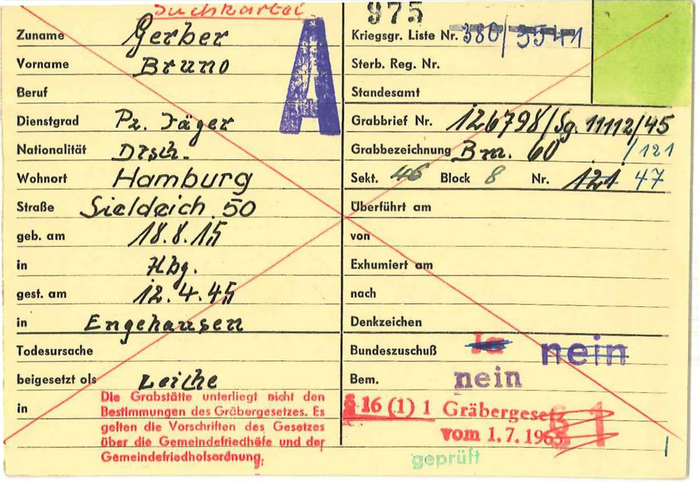 Suchkartei
975
Zuname Gerber
Vorname Bruno
Beruf
Dienstgrad Pz. Jäger
Nationalität Dtsch.
Wohnort Hamburg
Straße Sieldeich 50
geb. am 18.8.15
in Hbg.
gest. am 12.4.45
in Engehausen
Todesursache
beigesetzt als Leiche
in
Die Grabstätte unterliegt nicht den
Bestimmungen des Gräbergesetzes. Es
gelten die Vorschriften des Gesetzes
über die Gemeindefriedhöfe und der
Gemeindefriedhofsordnung.
A
Kriegsgr. Liste Nr. 380/3541
Sterb. Reg. Nr.
Standesamt
Grabbrief Nr. 126798/Sg. 11112/45
Grabbezeichnung Brn. 60 /121
Sekt. 46 Block 8 Nr. 121 47
Überführt am
von
Exhumiert am
nach
Denkzeichen
Bundeszuschuß Ja nein
Bem. nein
§ 16 (1) 1 Gräbergesetz
vom 1.7.1965
§ 1
geprüft